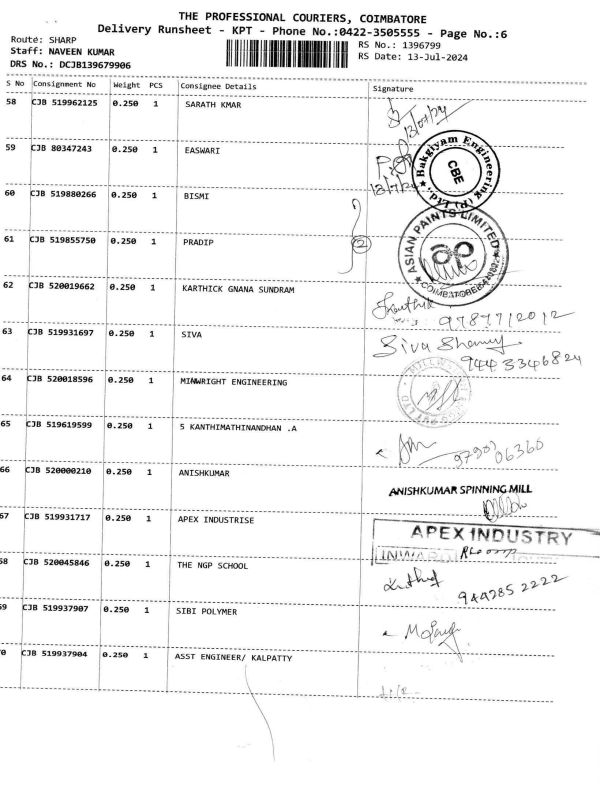 THE PROFESSIONAL COURIERS, COIMBATORE
Delivery Runsheet - KPT - Phone No.:0422-3505555 - Page No.:6
Route: SHARP
Staff: NAVEEN KUMAR
DRS No.: DCJB139679906
RS No.: 1396799
RS Date: 13-Jul-2024
S No Consignment No Weight PCS Consignee Details Signature
58 CJB 519962125 0.250 1 SARATH KMAR
13/07/24
59 CJB 80347243 0.250 1 EASWARI
Bakgiyam Engineering (P) Ltd.,
CBE
60 CJB 519880266 0.250 1 BISMI
61 CJB 519855750 0.250 1 PRADIP
2
ASIAN PAINTS LIMITED
ap
62 CJB 520019662 0.250 1 KARTHICK GNANA SUNDRAM
Karthik
9787712012
63 CJB 519931697 0.250 1 SIVA
Siva Shamy
9443346824
64 CJB 520018596 0.250 1 MINWRIGHT ENGINEERING
65 CJB 519619599 0.250 1 S KANTHIMATHINANDHAN .A
06360
66 CJB 520000210 0.250 1 ANISHKUMAR
ANISHKUMAR SPINNING MILL
67 CJB 519931717 0.250 1 APEX INDUSTRISE
APEX INDUSTRY
68 CJB 520045846 0.250 1 THE NGP SCHOOL
944285 2222
69 CJB 519937907 0.250 1 SIBI POLYMER
70 CJB 519937904 0.250 1 ASST ENGINEER/ KALPATTY